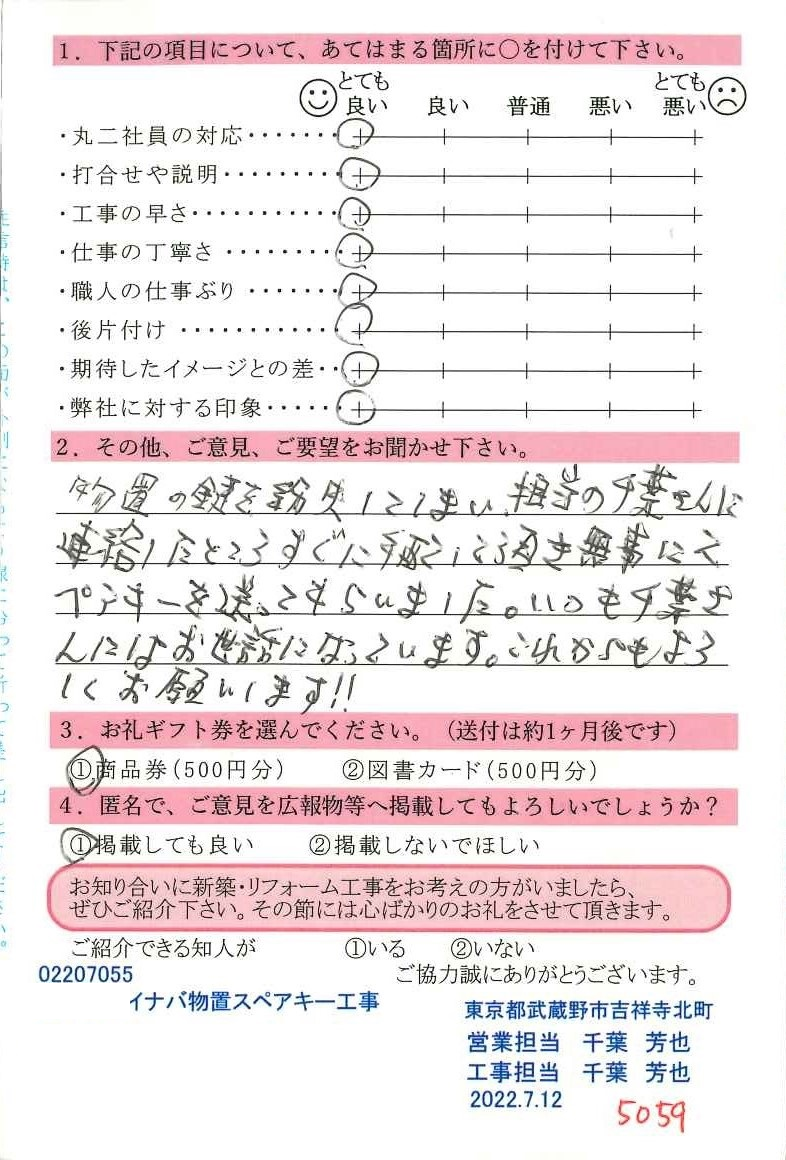 1．下記の項目について、あてはまる箇所に○を付けて下さい。
とても良い 良い 普通 悪い とても悪い
・丸二社員の対応・・・・・・・
・打合せや説明・・・・・・・・・
・工事の早さ・・・・・・・・・・・
・仕事の丁寧さ ・・・・・・・・・
・職人の仕事ぶり ・・・・・・・
・後片付け ・・・・・・・・・・・
・期待したイメージとの差・・
・弊社に対する印象・・・・・・
2．その他、ご意見、ご要望をお聞かせ下さい。
物置の鍵を紛失してしまい、担当の千葉さんに
連絡したところすぐに手配して頂き無事にス
ペアキーを送ってもらいました。いつも千葉さ
んにはお世話になっています。これからもよろ
しくお願いします!!
3．お礼ギフト券を選んでください。（送付は約1ヶ月後です）
①商品券（500円分） ②図書カード（500円分）
4．匿名で、ご意見を広報物等へ掲載してもよろしいでしょうか？
①掲載しても良い ②掲載しないでほしい
お知り合いに新築・リフォーム工事をお考えの方がいましたら、
ぜひご紹介下さい。その節には心ばかりのお礼をさせて頂きます。
ご紹介できる知人が ①いる ②いない
02207055 ご協力誠にありがとうございます。
イナバ物置スペアキー工事
東京都武蔵野市吉祥寺北町
営業担当 千葉 芳也
工事担当 千葉 芳也
2022.7.12
5059